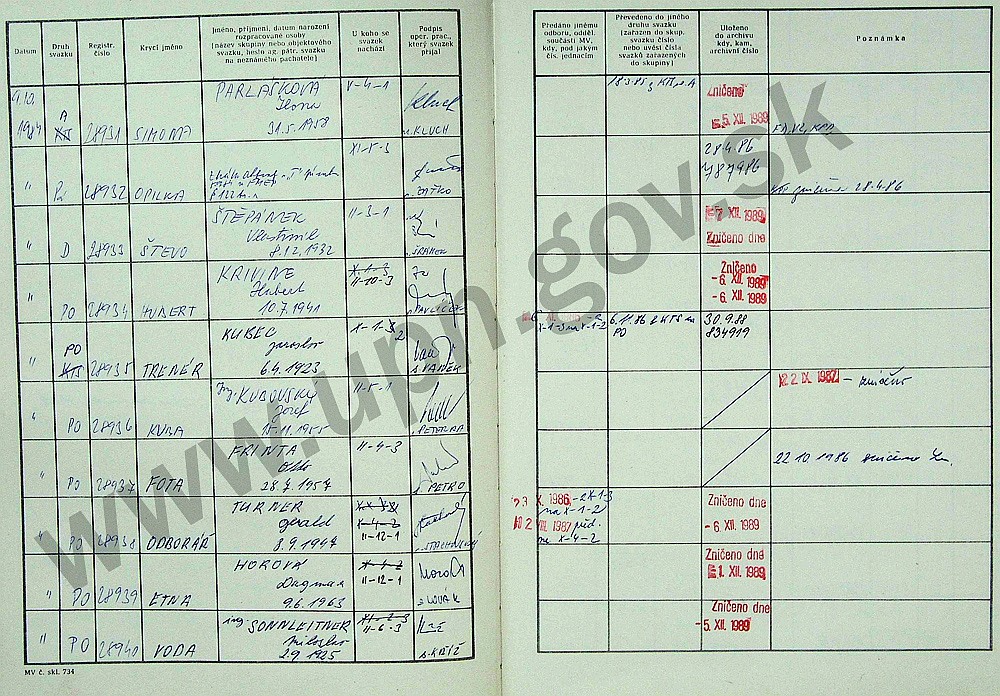 Datum
Druh svazku
Registr. číslo
Krycí jméno
Jméno, příjmení, datum narození
rozpracované osoby
(název skupiny nebo objektového
svazku, heslo ag. pátr. svazku
na neznámého pachatele)
U koho se
svazek
nachází
Podpis
oper. prac.,
který svazek
přijal
Předáno jinému
odboru, odděl.
součásti MV,
kdy, pod jakým
čís. jednacím
Převedeno do jiného
druhu svazku
(zařazen do skup.
svazku číslo
nebo uvést čísla
svazků zařazených
do skupiny)
Uloženo
do archivu
kdy, kam,
archivní číslo
Poznámka
9.10.
1984
A
KTS
28931
SIMONA
PARLAŠKOVÁ
Ilona
31.5.1958
V-4-1
KLUCH
Zničeno
5. XII. 1989
"
28932
OPILKA
XI-5-3
ZAŤKO
28.4.86
28.4.86
"
D
28933
ŠTEVO
ŠTĚPÁNEK
Vlastimil
8.12.1932
II-3-1
7. XII. 1989
Zničeno dne
"
PO
28934
HUBERT
KRIVINE
Hubert
10.7.1941
X-1-3
II-10-3
Zničeno
- 6. XII. 1989
- 6. XII. 1989
"
PO
KTS
28935
TRENÉR
KUBEC
Jaroslav
6.4.1923
X-1-3
2
VANĚK
X-1-3 na X-1-2
6.11.86 z KTS na
PO
30.9.88
834919
"
PO
28936
KUBA
Ing. KUBOVSKÝ
Jozef
15.11.1955
II-5-1
2. IX. 1987
"
PO
28937
FOTA
FRINTA
Otto
28.7.1957
II-4-3
PETRO
22.10.1986
"
PO
28938
ODBORÁŘ
TURNER
Gerald
8.9.1947
X-4-2
II-12-1
STACHOVSKÝ
23. X. 1986 - z X-1-3
na X-1-2
2. VII. 1987 před.
na X-4-2
Zničeno dne
- 6. XII. 1989
"
PO
28939
ETNA
HOROVÁ
Dagmar
9.6.1963
X-4-2
II-12-1
Zničeno dne
1. XII. 1989
"
PO
28940
VODA
ing. SONNLEITNER
Miloslav
2.9.1925
XI-2-3
II-6-3
KŘÍŽ
Zničeno dne
- 5. XII. 1989
MV č. skl. 734
www.upn.gov.sk